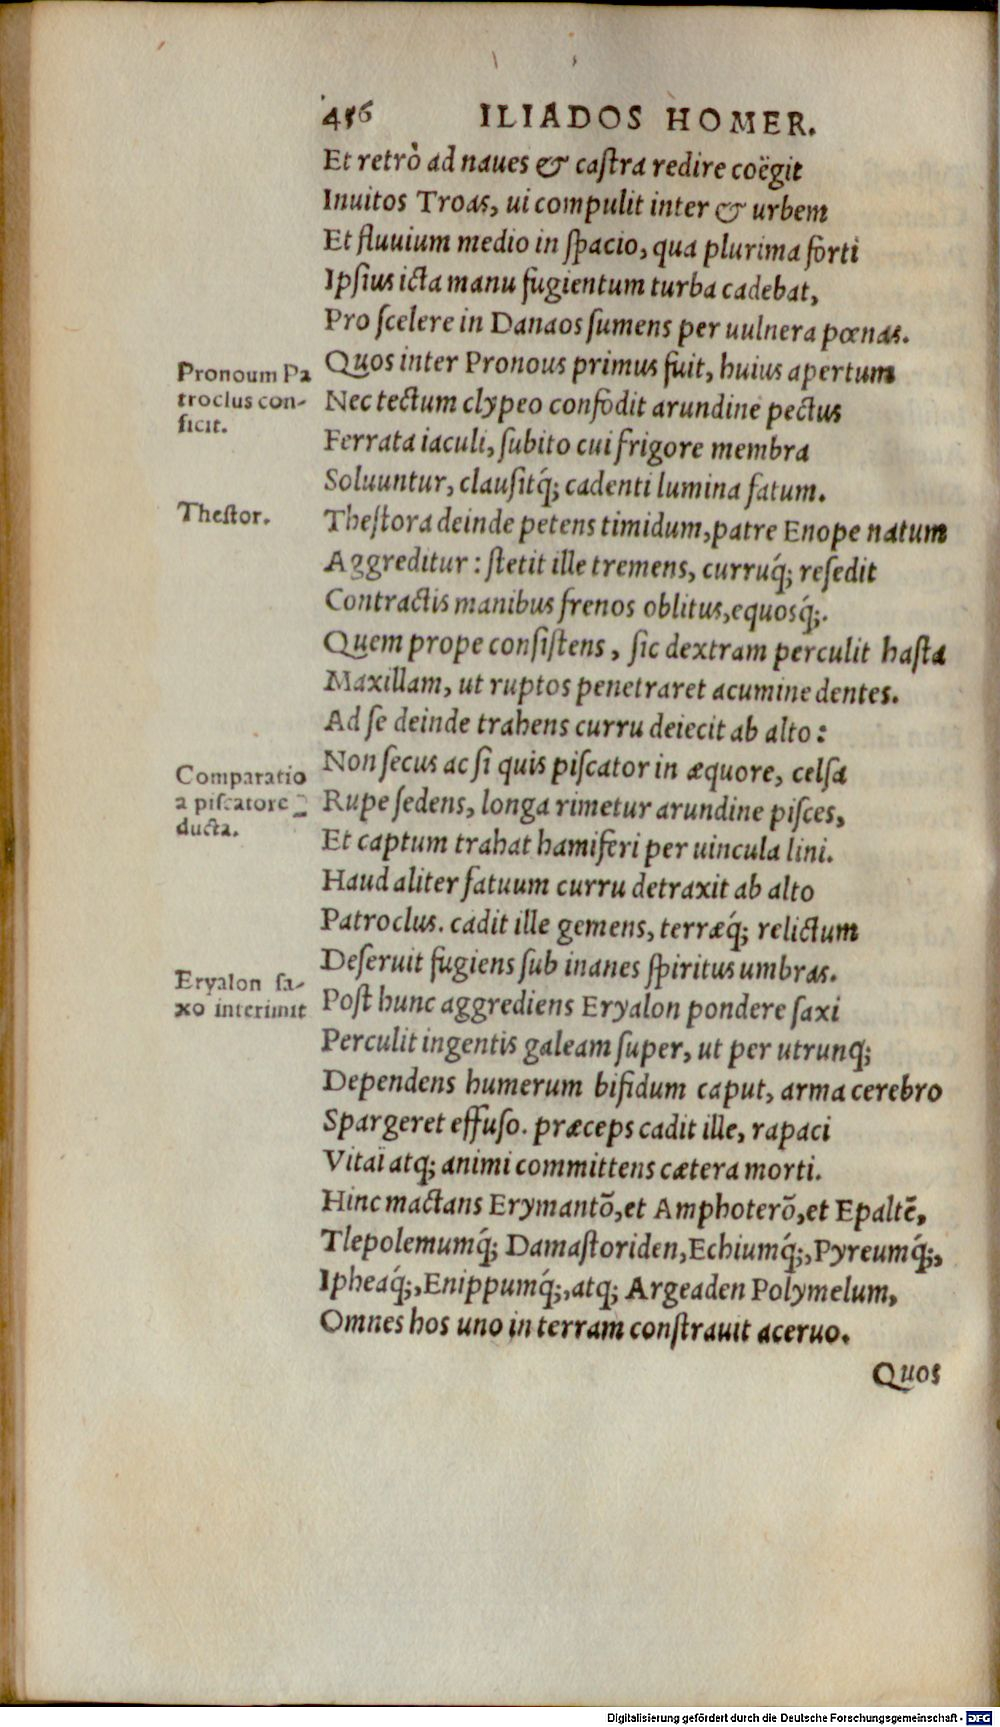 456 ILIADOS HOMER.
Et retrò ad naues & castra redire coëgit
Inuitos Troas, ui compulit inter & urbem
Et fluuium medio in spacio, qua plurima forti
Ipsius icta manu fugientum turba cadebat,
Pro scelere in Danaos sumens per uulnera pœnas.
Pronoum Pa
troclus con-
ficit.
Quos inter Pronous primus fuit, huius apertum
Nec tectum clypeo confodit arundine pectus
Ferrata iaculi, subito cui frigore membra
Soluuntur, clausitq́; cadenti lumina fatum.
Thestor.
Thestora deinde petens timidum, patre Enope natum
Aggreditur: stetit ille tremens, curruq́; resedit
Contractis manibus frenos oblitus, equosq́;.
Quem prope consistens, sic dextram perculit hasta
Maxillam, ut ruptos penetraret acumine dentes.
Ad se deinde trahens curru deiecit ab alto:
Comparatio
a piscatore
ducta.
Non secus ac si quis piscator in æquore, celsa
Rupe sedens, longa rimetur arundine pisces,
Et captum trahat hamiferi per uincula lini.
Haud aliter fatuum curru detraxit ab alto
Patroclus. cadit ille gemens, terræq́; relictum
Deseruit fugiens sub inanes spiritus umbras.
Eryalon sa-
xo interimit
Post hunc aggrediens Eryalon pondere saxi
Perculit ingentis galeam super, ut per utrunq;
Dependens humerum bifidum caput, arma cerebro
Spargeret effuso. præceps cadit ille, rapaci
Vitai atq; animi committens cætera morti.
Hinc mactans Erymantõ, et Amphoterõ, et Epaltẽ,
Tlepolemumq́; Damastoriden, Echiumq́;, Pyreumq́;,
Ipheaq́;, Enippumq́;, atq; Argeaden Polymelum,
Omnes hos uno in terram construuit aceruo.
Quos
Digitalisierung gefördert durch die Deutsche Forschungsgemeinschaft - DFG